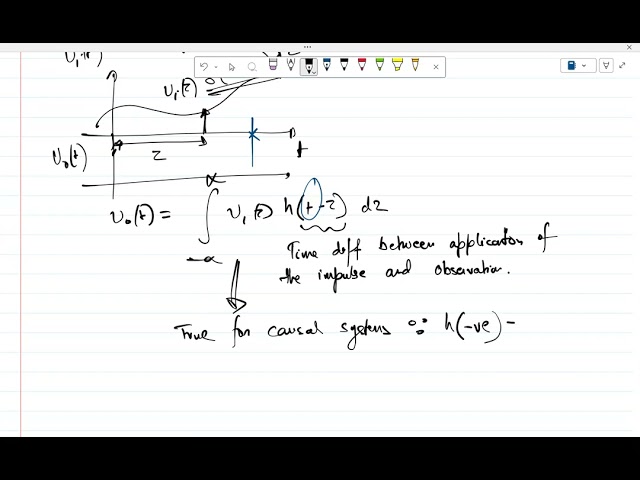 υᵢ(t)
υᵢ(τ)
υₒ(t)
τ
t
υₒ(t) = ∫ υᵢ(τ) h(t-τ) dτ
α
-α
Time diff between application of
the impulse and observation.
True for causal systems ∵ h(-ve) =